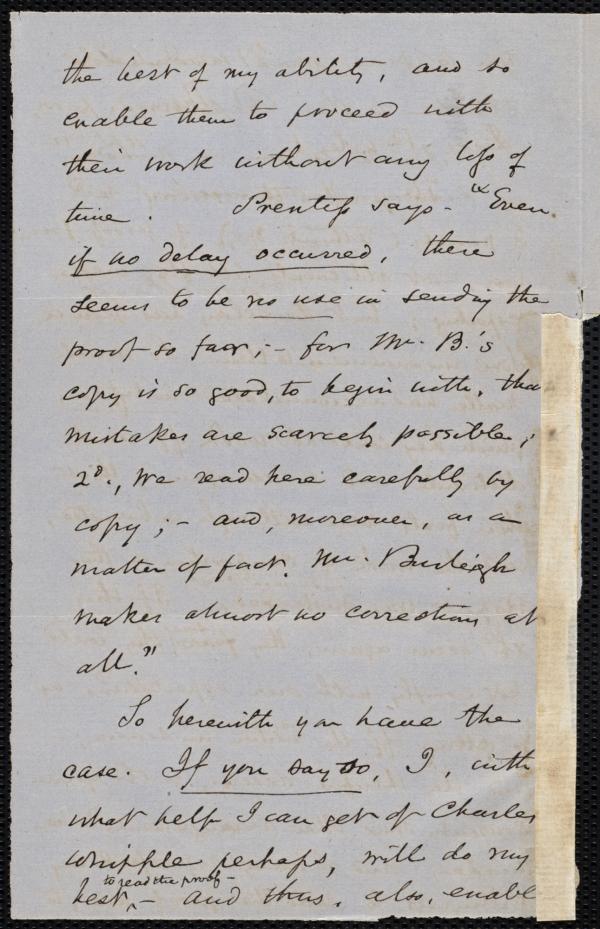 the best of my ability, and so
enable them to proceed with
their work without any loss of
time. Prentiss says - "Even
if no delay occurred, there
seems to be no use in sending the
proof so far; - for Mr. B.'s
copy is so good, to begin with, tha
mistakes are scarcely possible;
2d., we read here carefully by
copy; - and, moreover, as a
matter of fact, Mr. Burleigh
makes almost no corrections at
all."
So herewith you have the
case. If you say so, I, with
what help I can get of Charles
Whipple perhaps, will do my
to read the proof -
best, - and thus, also, enable